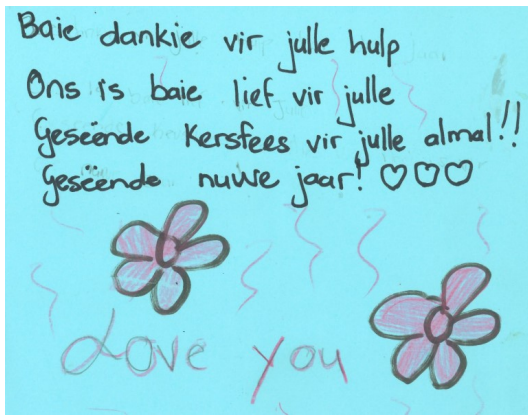 Baie dankie vir julle hulp
Ons is baie lief vir julle
Geseënde Kersfees vir julle almal!!
Geseënde nuwe jaar! ♡♡♡
Love you